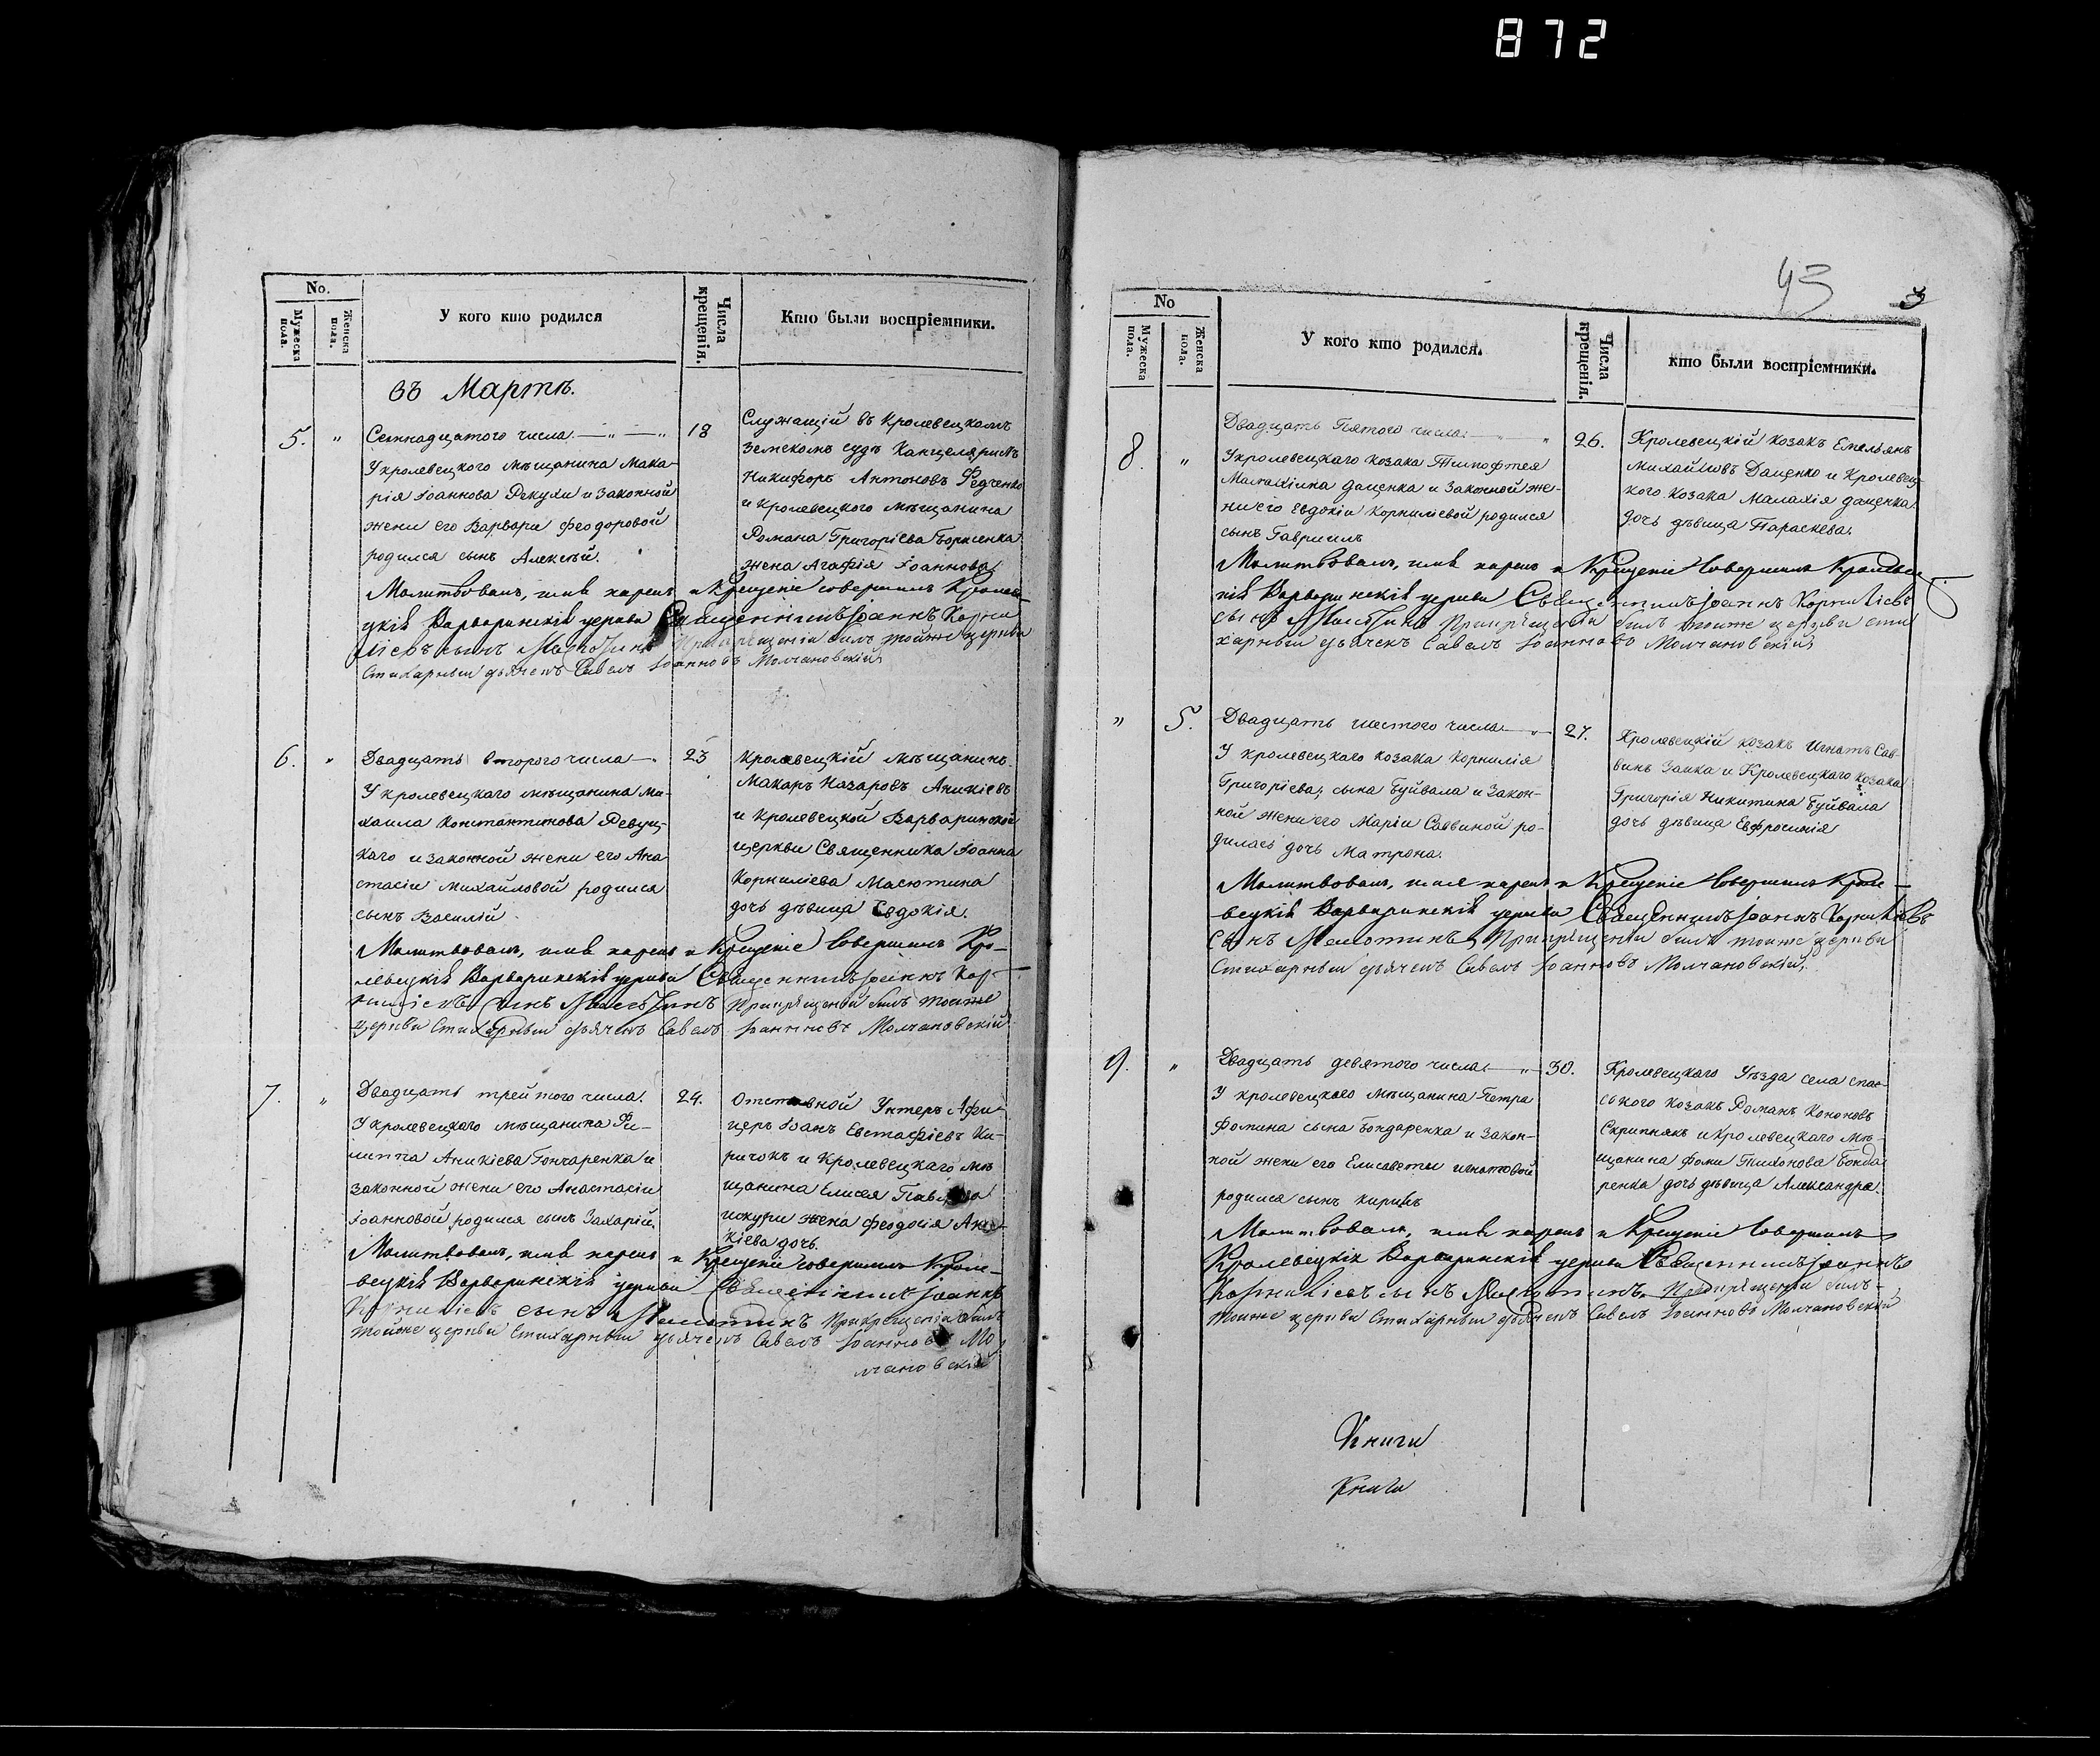 872
No.
Мужеска пола.
Женска пола.
У кого кто родился
Числа крещенія.
Кто были воспріемники.
въ Мартѣ.
5.
Семнадцатого числа.
У кролевецкого мѣщанина Мака-
рія Іоаннова Рекухи и законной
жени его Варвари Феодоровой
родился сынъ Алексѣй.
18
Служащій въ Кролевецкомъ
Земскомъ судѣ Канцеляристъ
Никифоръ Антоновъ Федченко
и кролевецкого мѣщанина
Романа Григоріева Борисенка
жена Агафія Іоаннова
Молитвовалъ, имя нарекъ и Крещеніе совершилъ Кролеве-
цкія Варваринскія церкви Священникъ Іоаннъ Корни
ліевъ сынъ Масютинъ При крещеніи билъ тойже церкви
Стихарный дьячекъ Савелъ Іоанновъ Молчановскій
6.
Двадцать второго числа
У кролевецкаго мѣщанина Ми-
хаила Константинова Ревуц-
каго и законной жени его Ана
стасіи Михайловой родился
сынъ Василій
23
Кролевецкій мѣщанинъ
Макаръ Назаровъ Аникіевъ
и Кролевецкой Варваринской
церкви Священника Іоанна
Корниліева Масютина
дочь дѣвица Евдокія.
Молитвовалъ, имя нарекъ и Крещеніе Совершилъ Кро-
левецкія Варваринскія церкви Священникъ Іоаннъ Кор-
ниліевъ Синъ Масютинъ При крещеніи билъ тоиже
церкви Стихарный дьячекъ Савелъ Іоанновъ Молчановскій
7.
Двадцать трейтого числа.
У кролевецкого мѣщанина Фи-
липпа Аникіева Гончаренка и
законной жени его Анастасіи
Іоанновой родился сынъ Захарій.
24.
Отставной Унтеръ Афи-
церъ Іоанъ Евстафіевъ Ки-
ричокъ и Кролевецкаго мѣ
щанина Елисея
жена Феодосія Ани-
кіева дочь.
Молитвовалъ, имя нарекъ и Крещеніе совершилъ Кроле-
вецкія Варваринскія церкви Священникъ Іоаннъ
Корниліевъ сынъ Масютинъ При крещеніи билъ
тойже церкви Стихарный дьячекъ Савелъ Іоанновъ Мо
лчановскій
43
3
No
Мужеска пола.
Женска пола.
У кого кто родился.
Числа крещенія.
кто были воспріемники.
8.
Двадцать Пятого числа
У кролевецкаго козака Тимофтея
Малахіина Даценка и Законной же-
ни его Евдокіи Корниліевой родился
сынъ Гавриилъ
26.
Кролевецкій козакъ Емельянъ
Михайловъ Даценко и Кролевец-
кого козака Малахія Даценка
дочь дѣвица Параскева.
Молитвовалъ, имя нарекъ и Крещеніе Совершилъ Кролевец
кія Варваринскія церкви Священникъ Іоаннъ Корниліевъ
сынъ Масютинъ При крещеніи билъ тоиже церкви сти
харный дьячекъ Савелъ Іоанновъ Молчановскій
5.
Двадцать шестого числа
У кролевецкаго козака Корнилія
Григоріева, сына Буйвала и Закон-
ной жени его Маріи Саввиной ро-
дилась дочь Матрона.
27.
Кролевецкій козакъ Игнатъ Сав-
винъ Заика и Кролевецкаго козака
Григорія Никитина Буйвала
дочь дѣвица Евфросинія
Молитвовалъ, имя нарекъ и Крещеніе Совершилъ Кроле-
вецкія Варваринскія церкви Священникъ Іоаннъ Корниліевъ
Сынъ Масютинъ При крещеніи билъ тоиже церкви
Стихарный дьячекъ Савелъ Іоанновъ Молчановскій.
9.
Двадцать девятого числа
У кролевецкаго мѣщанина Петра
Фомина сына Бондаренка и Закон-
ной жени его Елисаветы Игнатовой
родился сынъ Кирилъ
30.
Кролевецкаго Уѣзда села Спас-
ского козакъ Романъ Кононовъ
Скрипнякъ и кролевецкаго мѣ-
щанина Фоми Тихонова Бонда
ренка дочь дѣвица Александра.
Молитвовалъ, имя нарекъ и Крещеніе Совершилъ
Кролевецкія Варваринскія церкви Священникъ Іоаннъ
Корниліевъ сынъ Масютинъ При крещеніи билъ
тоиже церкви Стихарный дьячекъ Савелъ Іоанновъ Молчановскій
Книги
Книги